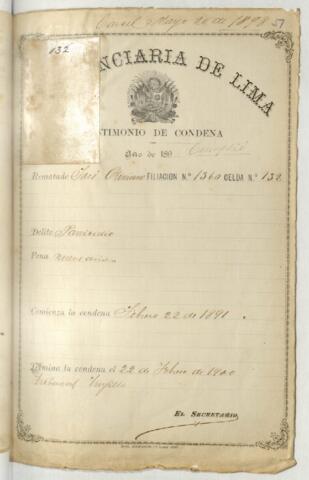 Mayo 20 de 1898 51
132
NCIARIA DE LIMA
STIMONIO DE CONDENA
Año de 189 Cumplió
Rematado José FILIACION N.º 1360 CELDA N.º 132
Delito Parricidio
Pena
Comienza la condena Febrero 22 de 1891
Termina la condena el 22 de Febrero de 1900
Tribunal Trujillo
EL SECRETARIO